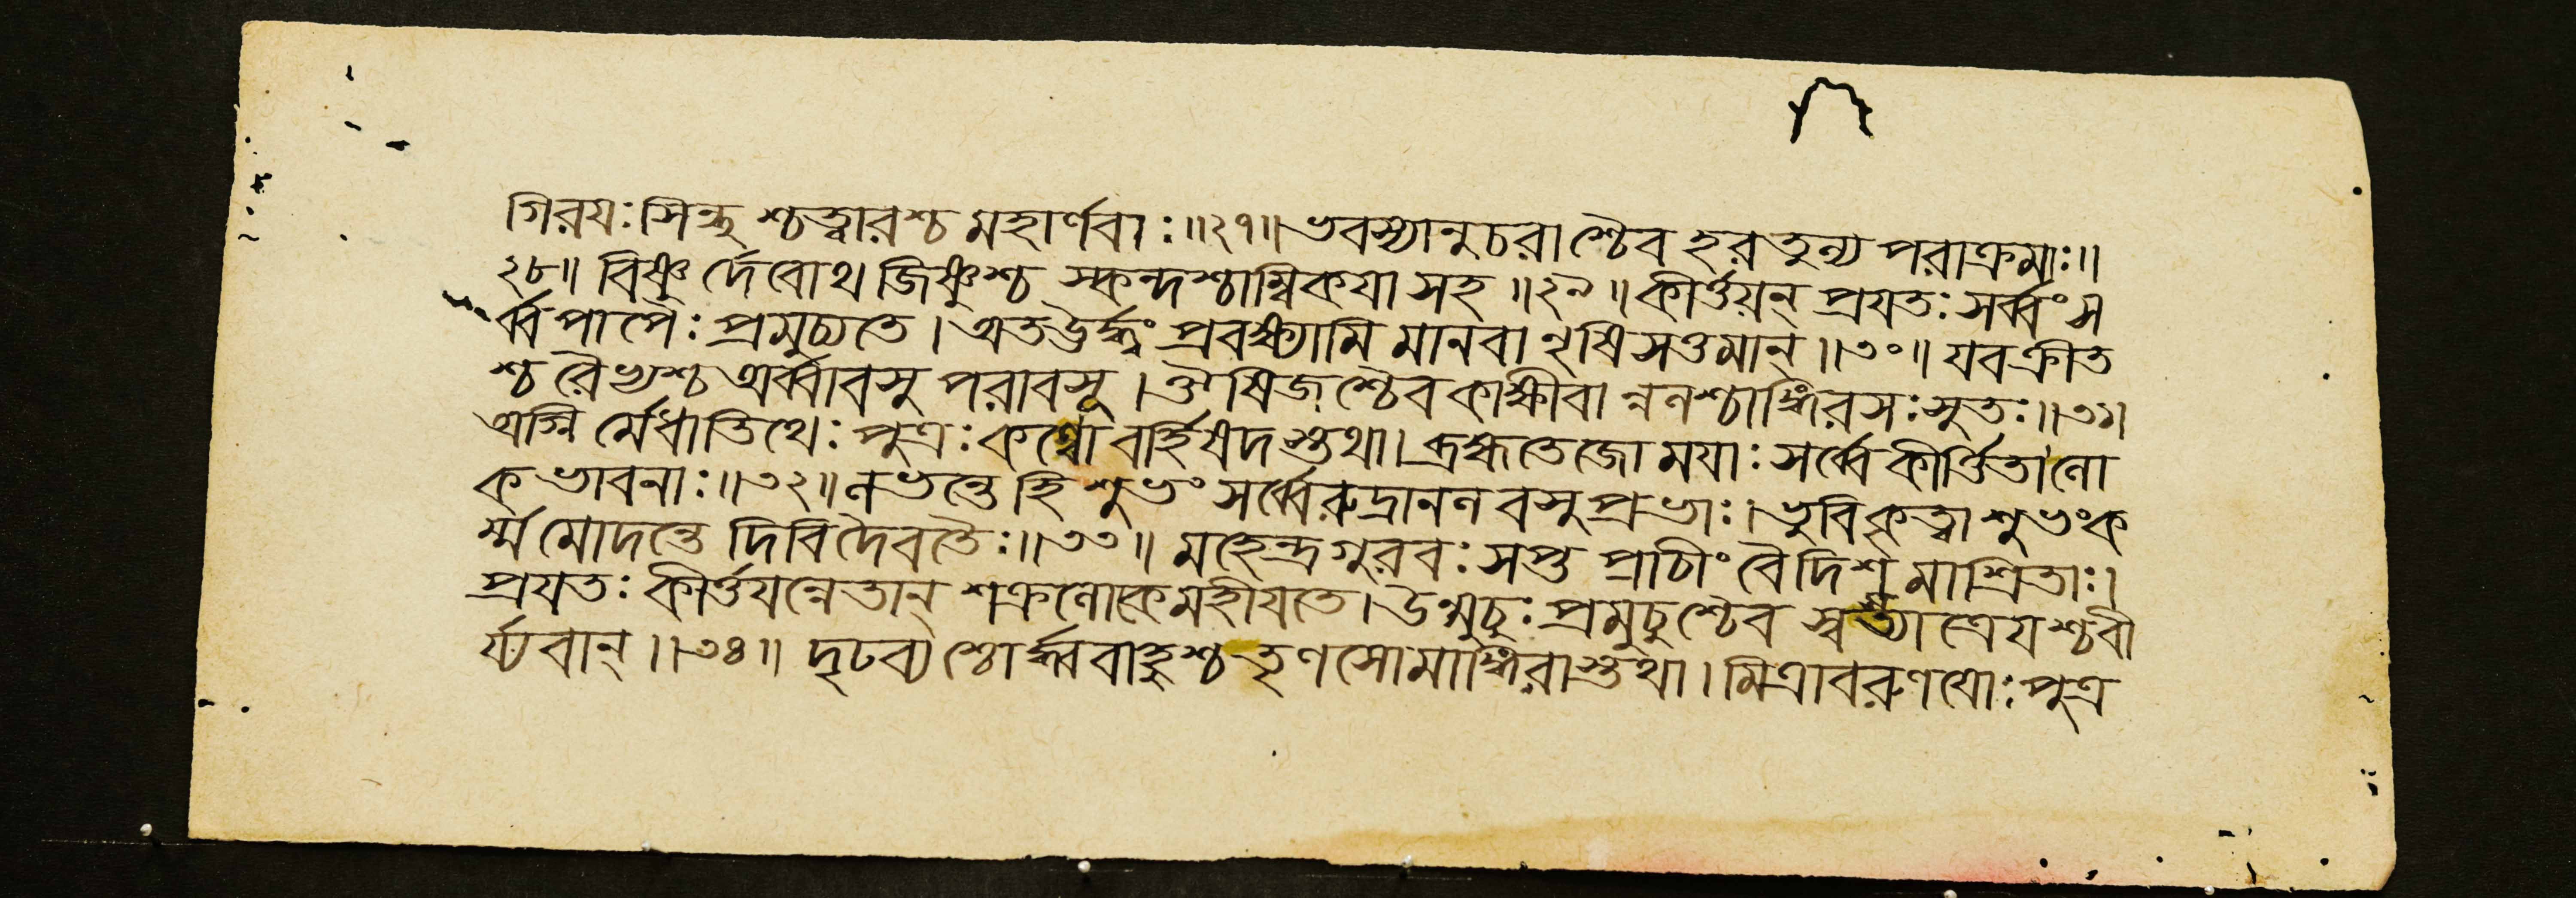 গিরযঃ সিন্ধুশ্চত্বারশ্চ মহার্ণবাঃ ॥২৭॥ ভবস্যানুচরাশ্চৈব হরতুল্য পরাক্রমাঃ ॥
২৮॥ বিষ্ণুর্দেবোথ জিষ্ণুশ্চ স্কন্দশ্চাম্বিকযা সহ ॥২৯॥ কীর্ত্তয়ন্ প্রযতঃ সর্ব্বং স
র্ব্ব পাপৈঃ প্রমুচ্যতে । অতঊর্দ্ধ্বং প্রবক্ষ্যামি মানবানৃষিসত্তমান্ ॥৩০॥ যবক্রীত
শ্চ রৈভ্যশ্চ অর্ব্বাবসু পরাবসূ । ঔষিজশ্চৈব কাক্ষীবান্নলশ্চাঙ্গিরসঃ সুতঃ ॥৩১॥
অগ্নির্মেধাতিথেঃ পুত্রঃ কণ্বো বর্হিষদস্তথা । ব্রহ্মতেজোময়াঃ সর্ব্বে কীর্ত্তিতালো
ক ভাবনাঃ ॥৩২॥ লভন্তে হি শুভং সর্ব্বে রুদ্রানল বসুপ্রভাঃ । ভুবি কৃত্বা শুভং ক
র্ম্ম মোদন্তে দিবি দৈবতৈঃ ॥৩৩॥ মহেন্দ্রগুরবঃ সপ্ত প্রাচীং বৈ দিশমাশ্রিতাঃ ।
প্রযতঃ কীর্ত্তযন্নেতান্ শক্রলোকে মহীযতে । উন্মুচুঃ প্রমুচুশ্চৈব স্বস্ত্যাত্রেযশ্চবী
র্য্যবান্ ॥৩৪॥ দৃঢব্যশ্চোর্দ্ধ্ববাহুশ্চ তৃণসোমাঙ্গিরাস্তথা । মিত্রাবরুণযোঃ পুত্র